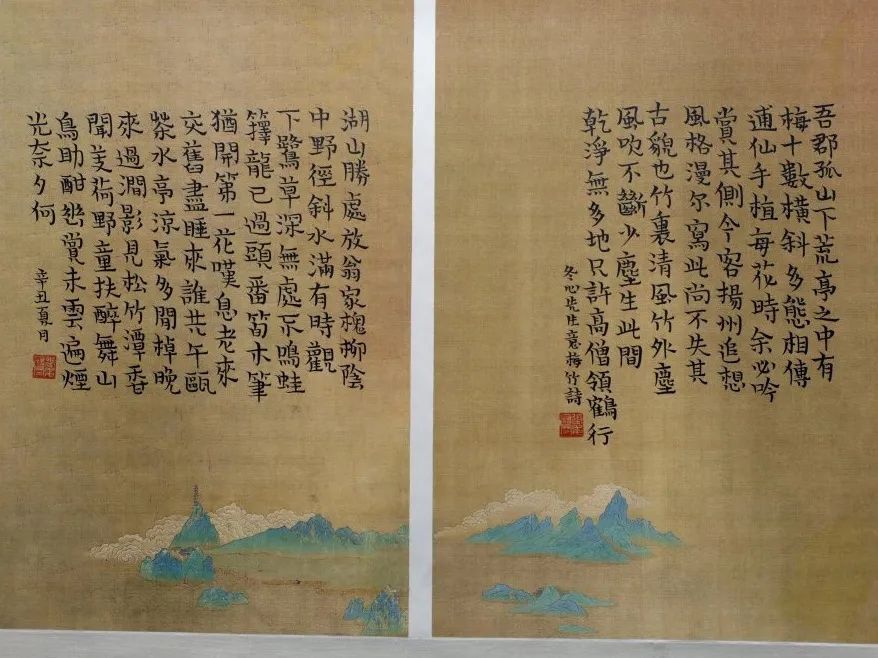 吾郡孤山下荒亭之中有
梅十數橫斜多態相傳
逋仙手植每花時余必吟
賞其側今客揚州追想
風格漫尔寫此尚不失其
古貌也竹裏清風竹外塵
風吹不斷少塵生此間
乾淨無多地只許高僧領鶴行
冬心先生意梅竹詩
湖山勝處放翁家槐柳陰
中野徑斜水滿有時觀
下鷺草深無處不鳴蛙
籜龍已過頭番筍木筆
猶開第一花嘆息老來
交舊盡睡來誰共午甌
茶水亭涼氣多閒棹晚
來過澗影見松竹潭香
聞芰荷野童扶醉舞山
鳥助酣幽賞未雲遍煙
光奈夕何
辛丑夏月